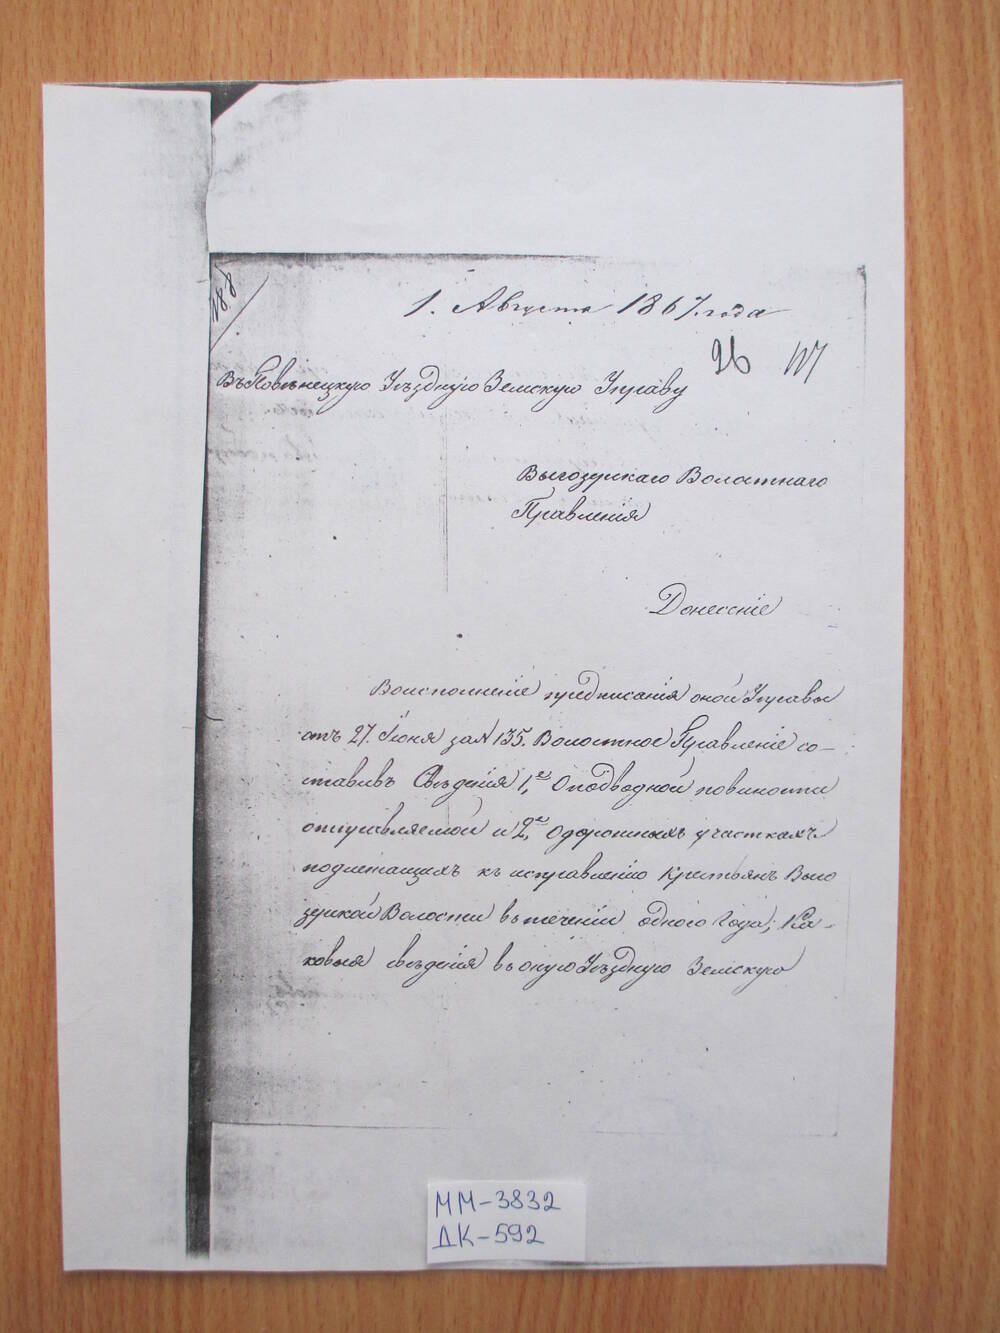 188
1. Августа 1867. года
26
Въ Повѣнецкую Уѣздную Земскую Управу
Выгозерскаго Волостнаго
Правленія
Донесеніе
Воисполненіе предписанія оной Управы
отъ 27. Іюня за № 135. Волостное Правленіе со-
ставивъ Свѣденія 1,е О подводной повиности
отправляемой и 2,е Одорожныхъ участкахъ
подлежащихъ къ исправленію Крестьянъ Выго
зерской Волости въ теченіи одного года; Ка-
ковыя свѣденія въ оную Уѣздную Земскую
ММ-3832
ДК-592